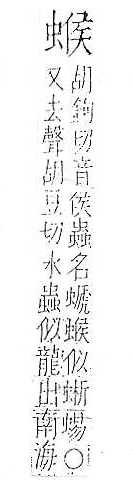 蠀
胡鉤切音侯蟲名螔蠀似蜥蜴○
又去聲胡豆切水蟲似龍出南海